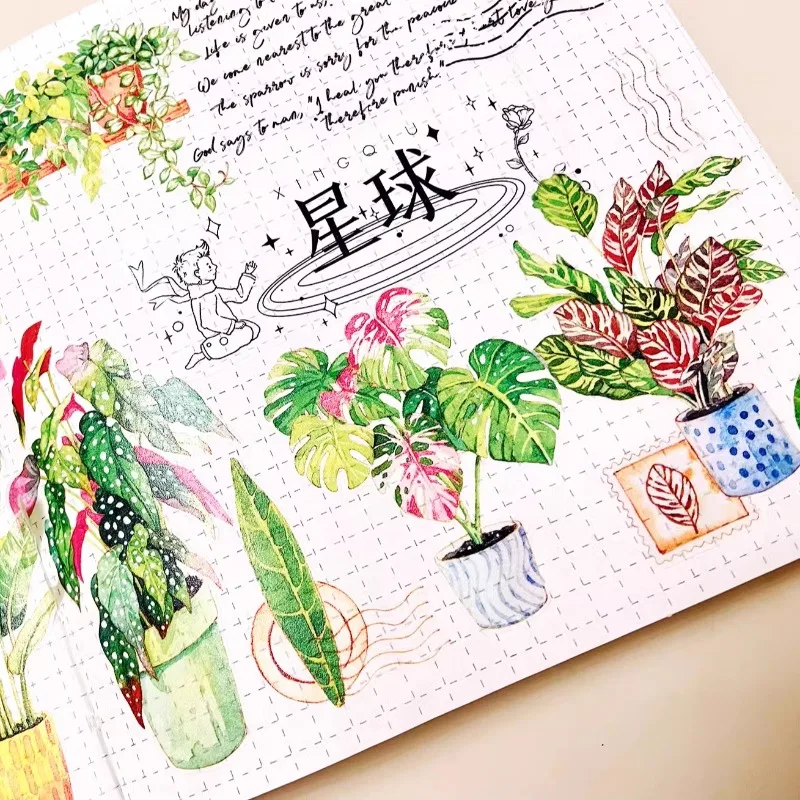 My day
listening to
Life is given to us,
We come nearest to the great
the sparrow is sorry for the peacock
God says to man, "I heal you therefore
therefore punish."
XINGQIU
星球